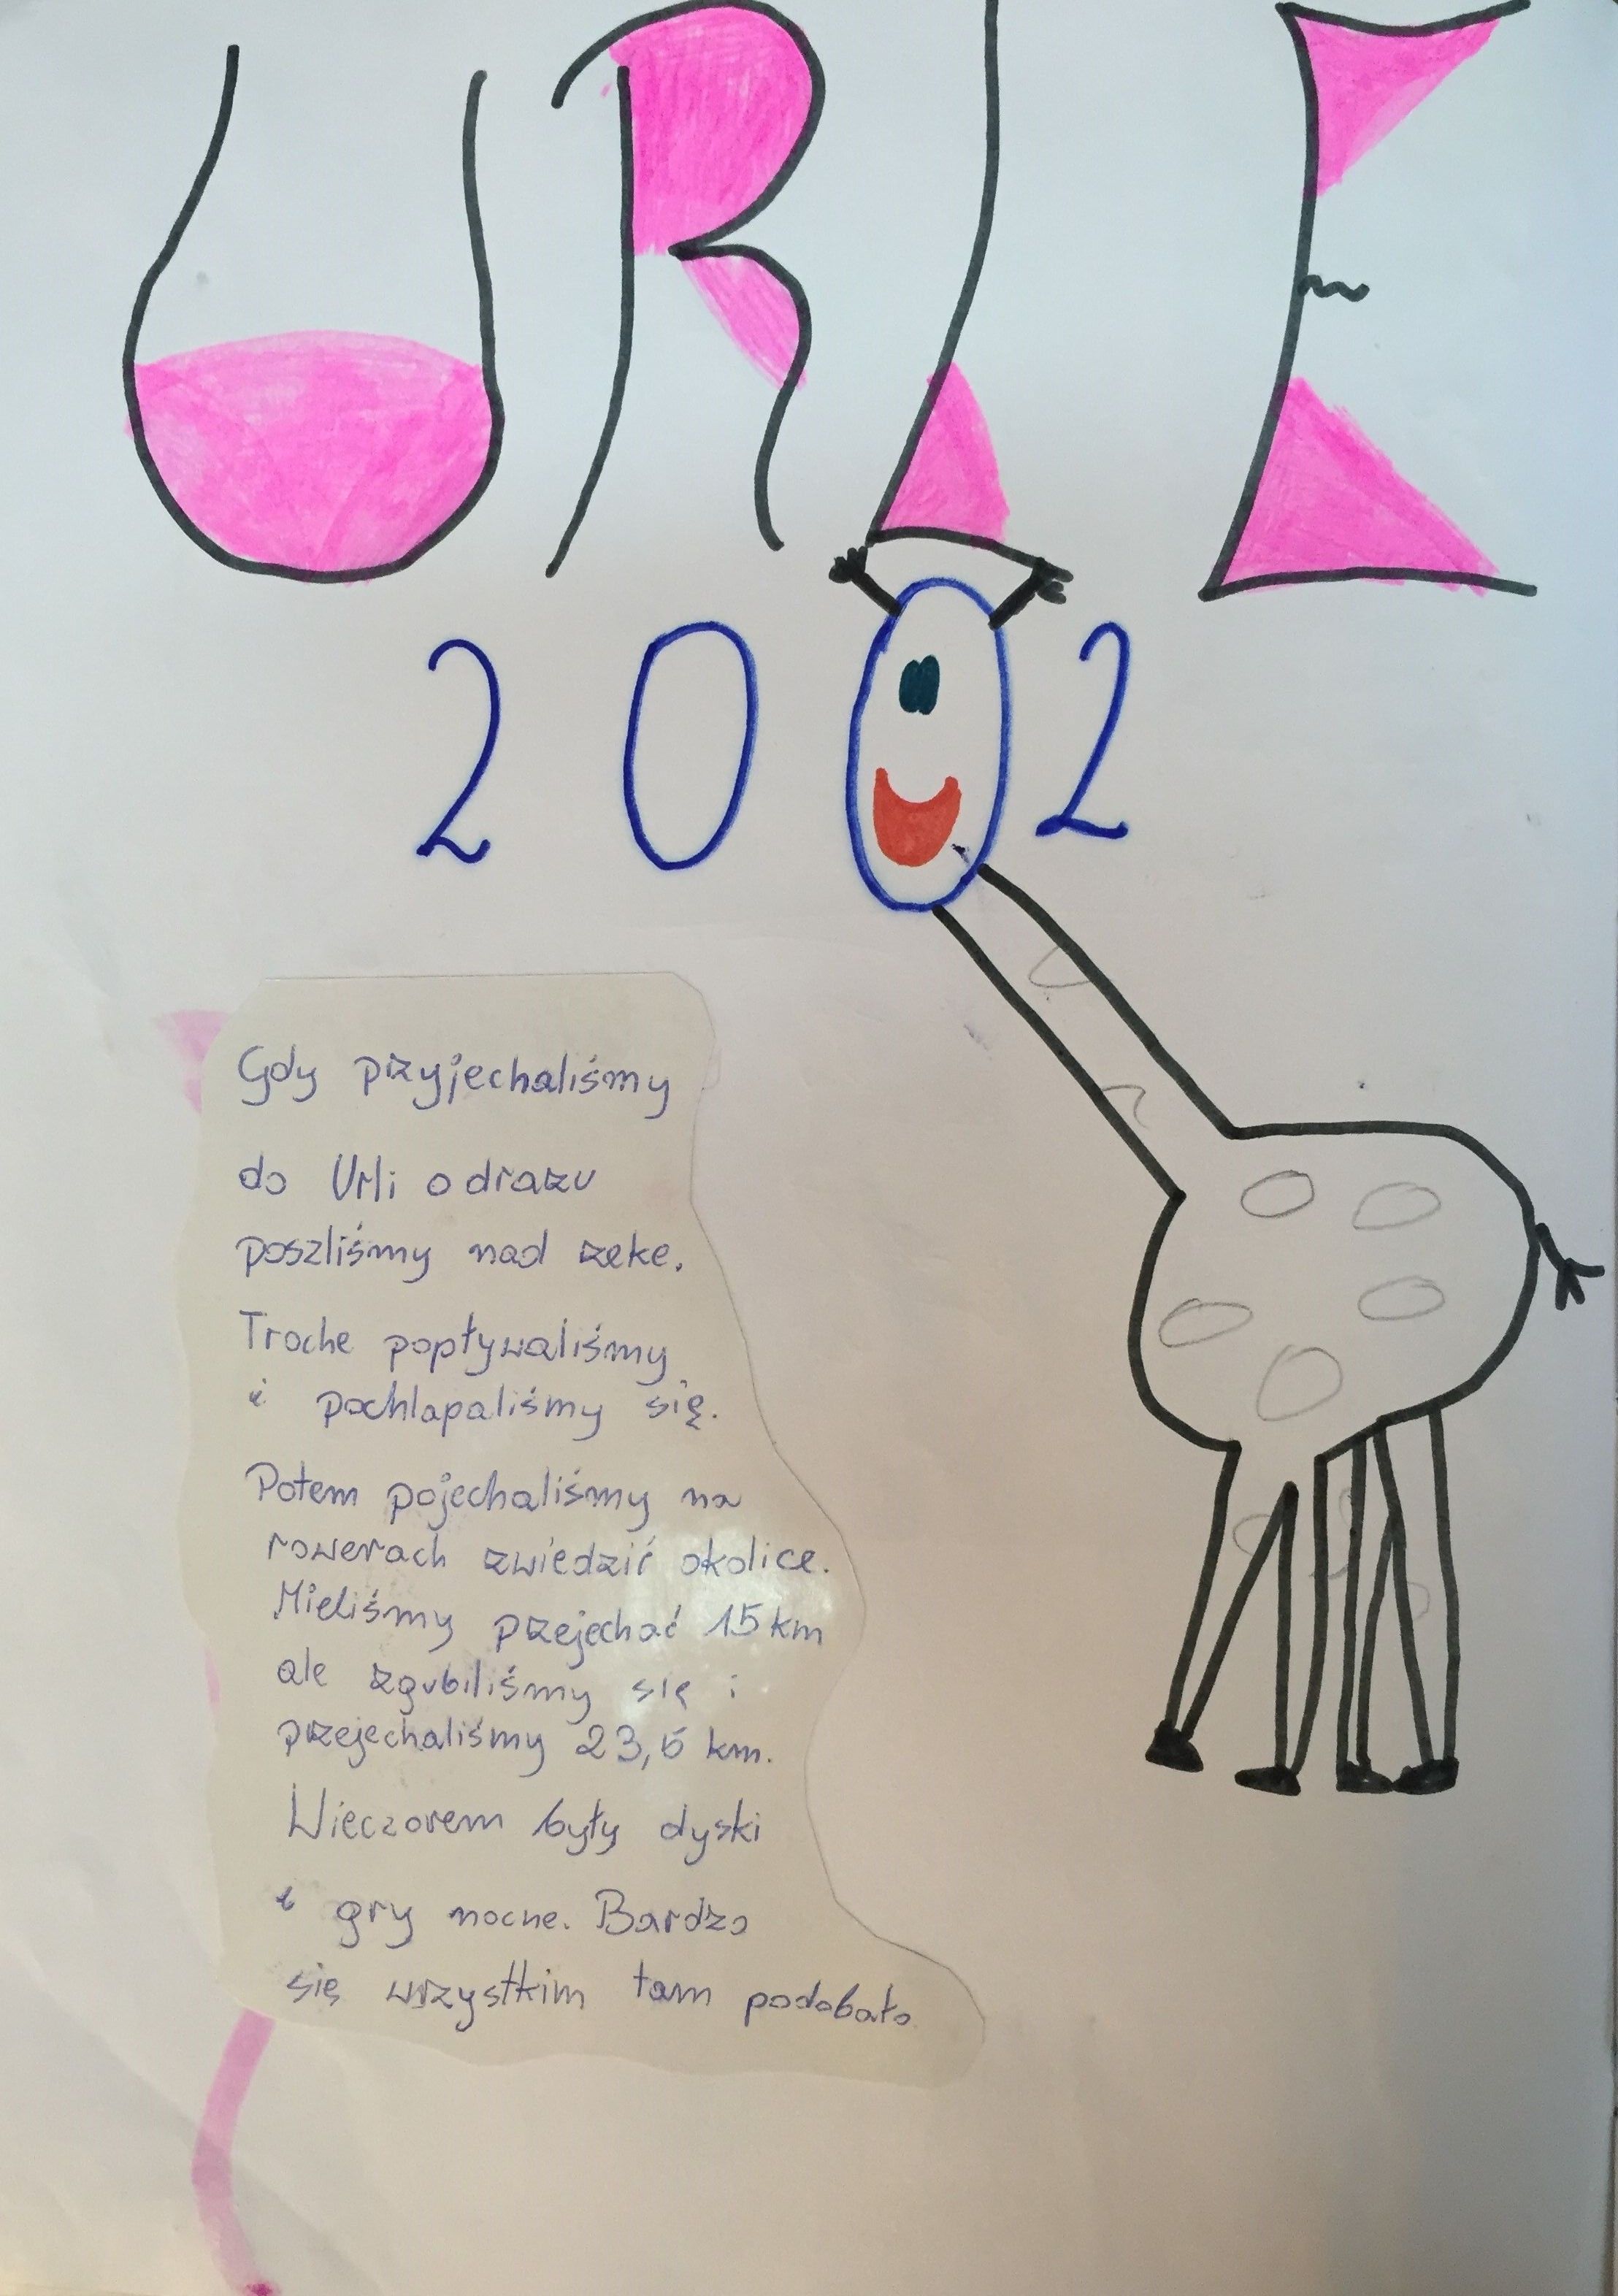 URLE
2002
Gdy przyjechaliśmy
do Urli odrazu
poszliśmy nad rzeke.
Troche popływaliśmy
i pochlapaliśmy się.
Potem pojechaliśmy na
rowerach zwiedzić okolice.
Mieliśmy przejechać 15 km
ale zgubiliśmy się i
przejechaliśmy 23,5 km.
Wieczorem były dyski
i gry nocne. Bardzo
się wszystkim tam podobało